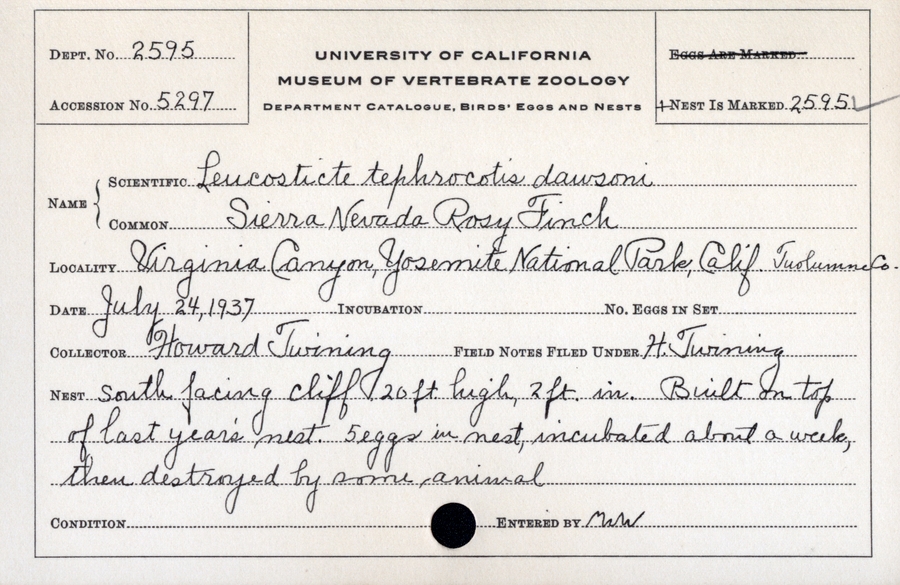 DEPT. No. 2595
UNIVERSITY OF CALIFORNIA
MUSEUM OF VERTEBRATE ZOOLOGY
DEPARTMENT CATALOGUE, BIRDS' EGGS AND NESTS
EGGS ARE MARKED
ACCESSION No. 5297
1 NEST IS MARKED 2595
NAME
SCIENTIFIC Leucosticte tephrocotis dawsoni
COMMON Sierra Nevada Rosy Finch
LOCALITY Virginia Canyon, Yosemite National Park, Calif. Tuolumne Co.
DATE July 24, 1937 INCUBATION NO. EGGS IN SET
COLLECTOR Howard Twining FIELD NOTES FILED UNDER H. Twining
NEST South facing cliff, 20 ft high, 2 ft. in. Built on top
of last year's nest. 5 eggs in nest, incubated about a week,
then destroyed by some animal
CONDITION ENTERED BY